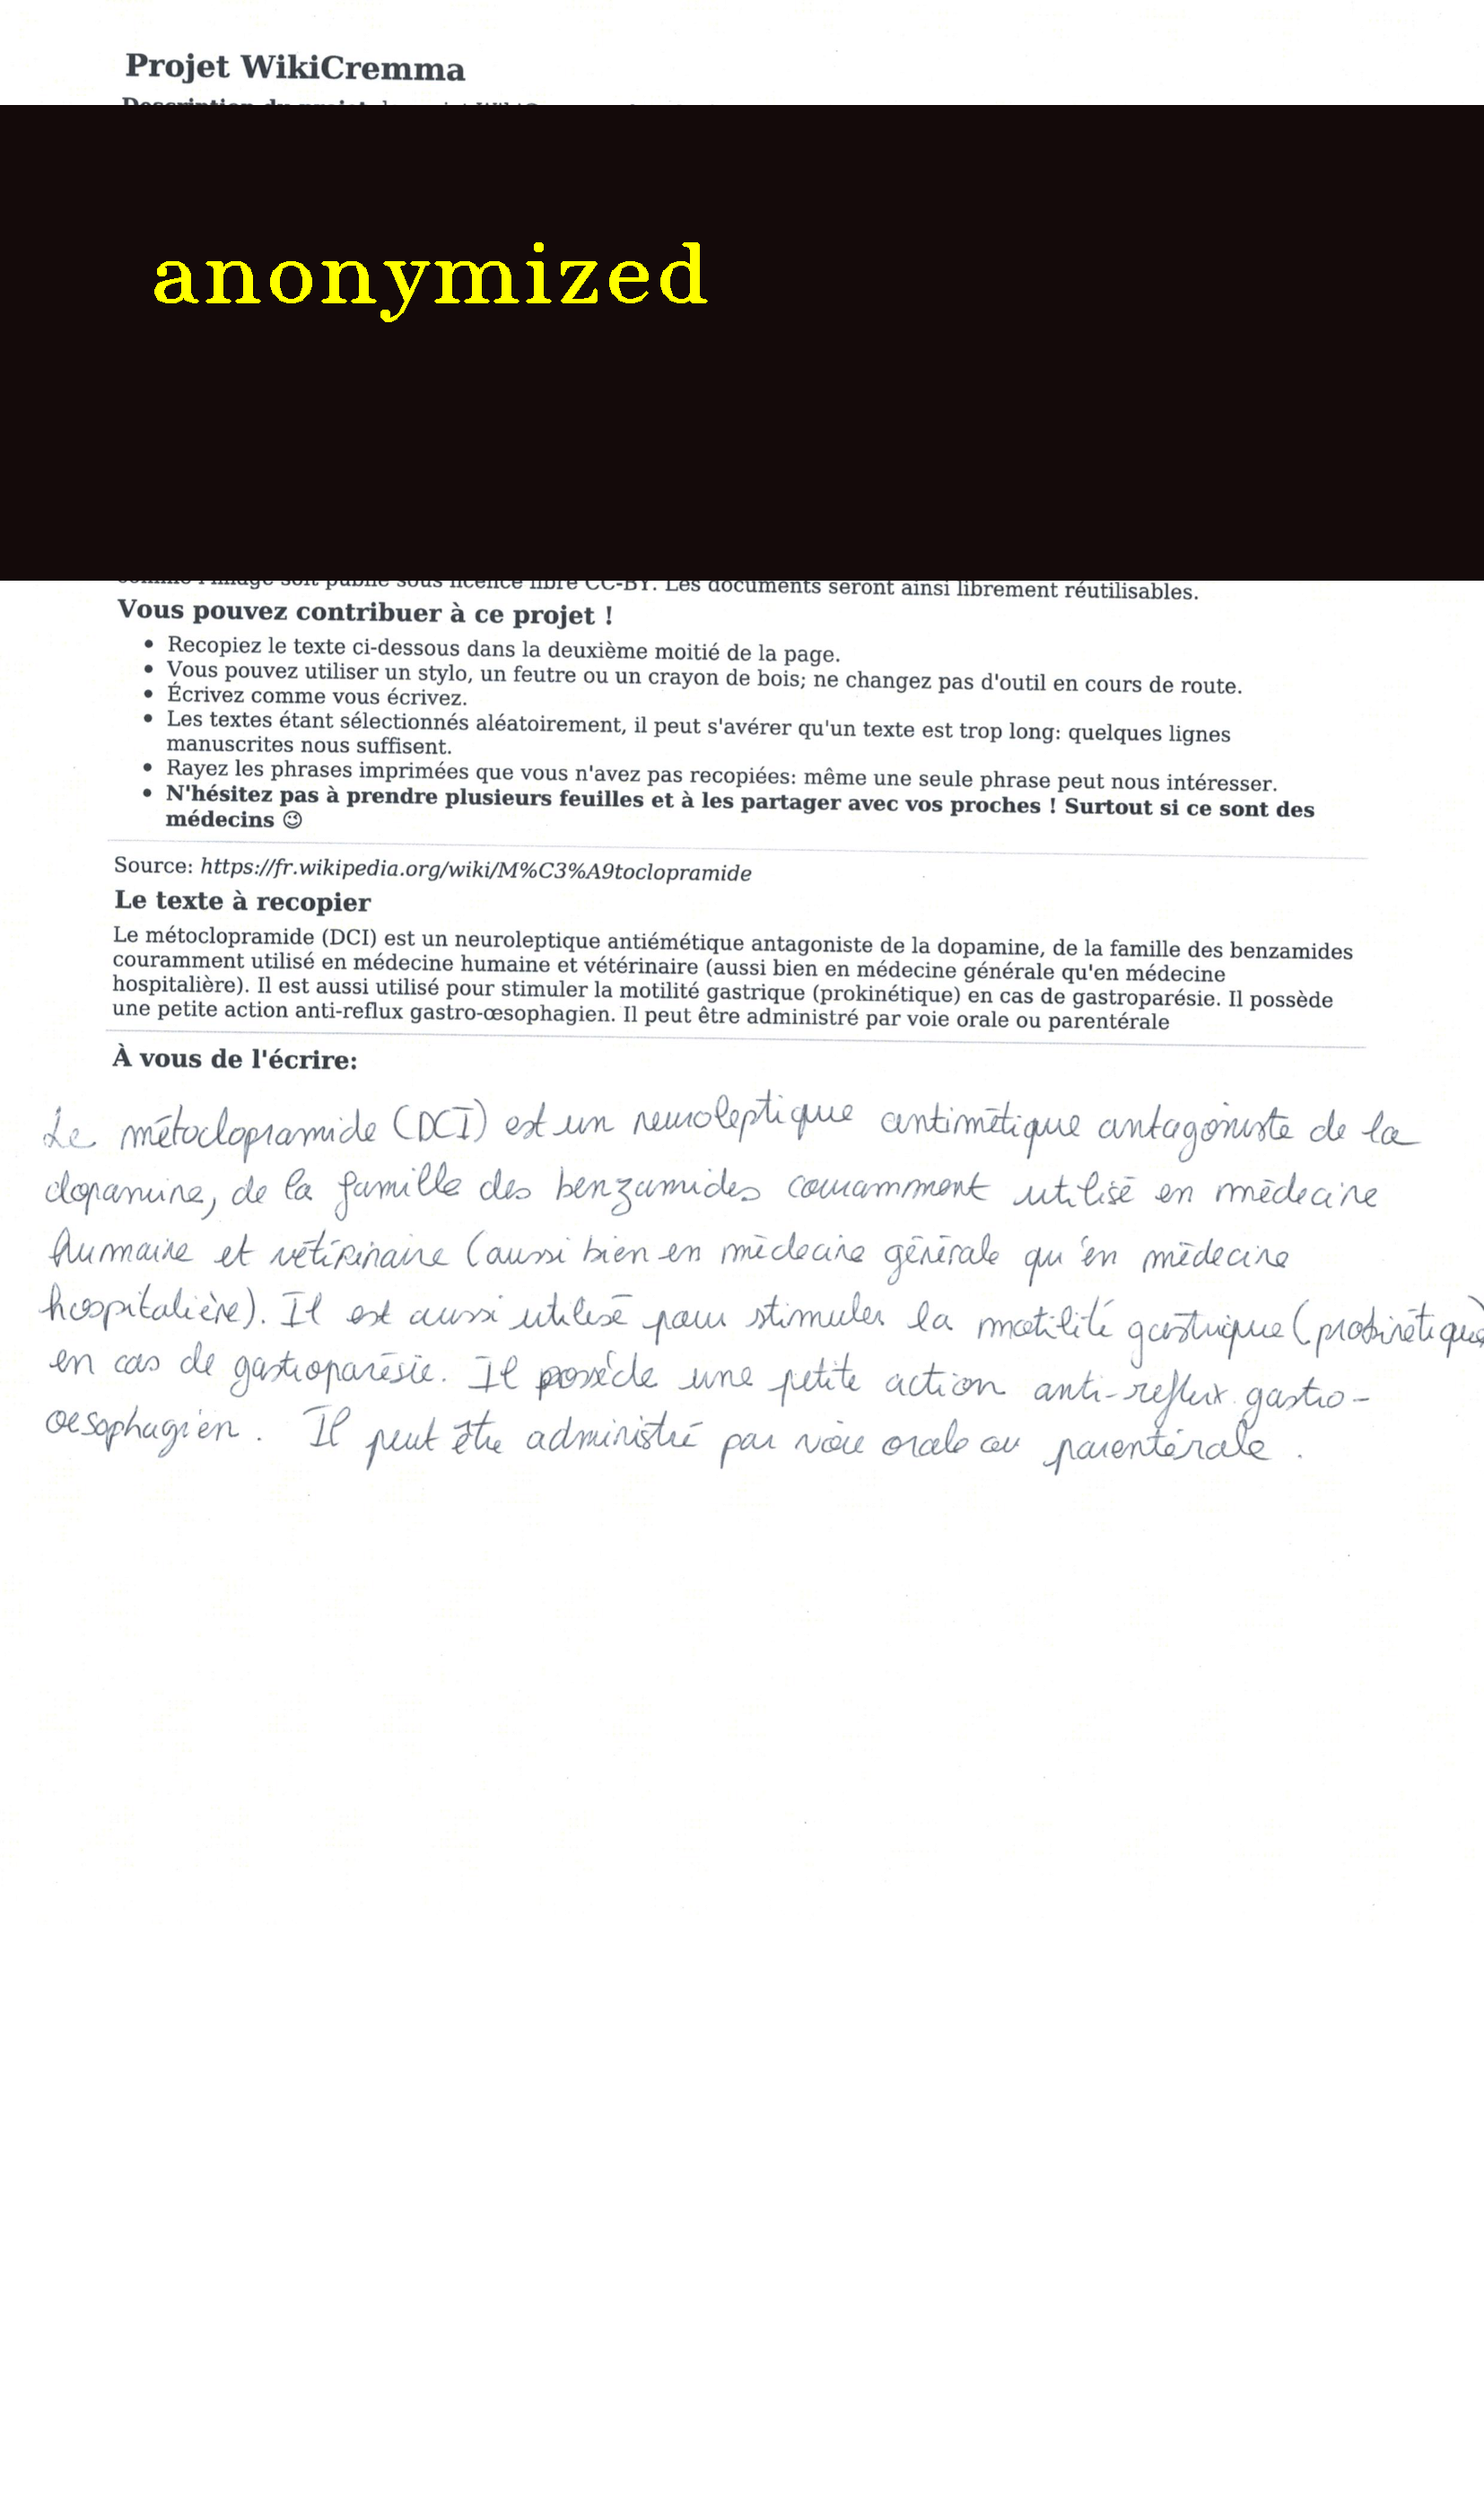 Projet WikiCremma
anonymized
comme l'image soit publié sous licence libre CC-BY. Les documents seront ainsi librement réutilisables.
Vous pouvez contribuer à ce projet !
• Recopiez le texte ci-dessous dans la deuxième moitié de la page.
• Vous pouvez utiliser un stylo, un feutre ou un crayon de bois; ne changez pas d'outil en cours de route.
• Écrivez comme vous écrivez.
• Les textes étant sélectionnés aléatoirement, il peut s'avérer qu'un texte est trop long: quelques lignes
manuscrites nous suffisent.
• Rayez les phrases imprimées que vous n'avez pas recopiées: même une seule phrase peut nous intéresser.
• N'hésitez pas à prendre plusieurs feuilles et à les partager avec vos proches ! Surtout si ce sont des
médecins 😉
Source: https://fr.wikipedia.org/wiki/M%C3%A9toclopramide
Le texte à recopier
Le métoclopramide (DCI) est un neuroleptique antiémétique antagoniste de la dopamine, de la famille des benzamides
couramment utilisé en médecine humaine et vétérinaire (aussi bien en médecine générale qu'en médecine
hospitalière). Il est aussi utilisé pour stimuler la motilité gastrique (prokinétique) en cas de gastroparésie. Il possède
une petite action anti-reflux gastro-œsophagien. Il peut être administré par voie orale ou parentérale
À vous de l'écrire:
Le métoclopramide (DCI) est un neuroleptique antimétique antagoniste de la
dopamine, de la famille des benzamides couramment utilisé en médecine
humaine et vétérinaire (aussi bien en médecine générale qu'en médecine
hospitalière). Il est aussi utilisé pour stimuler la motilité gastrique (prokinétique
en cas de gastroparésie. Il possède une petite action anti-reflux gastro-
œsophagien. Il peut être administré par voie orale ou parentérale.